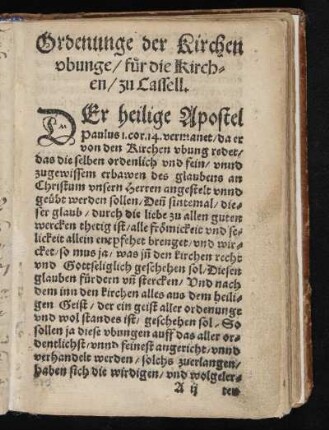 Ordenunge der Kirchen
vbunge/ für die Kirch-
en/ zu Cassell.
DEr heilige Apostel
Paulus 1.cor.14. vermanet/ da er
von den Kirchen vbung redet/
das die selben ordenlich vnd fein/ vnnd
zugewissem erbawen des glaubens an
Christum vnsern Herren angestelt vnnd
geübt werden sollen. Deñ sintemal/ die-
ser glaub/ durch die liebe zu allen guten
wercken thetig ist/ alle frömickeit vnd se-
lickeit allein empfehet brenget/ vnd wir-
cket/ so mus ja/ was jñ den kirchen recht
vnd Gottseliglich geschehen sol/ Diesen
glauben fürdern vñ stercken/ Vnd nach
dem inn den kirchen alles aus dem heili-
gen Geist/ der ein geist aller ordenunge
vnd wol standes ist/ geschehen sol/ So
sollen ja diese vbungen auff das aller or-
dentlichst/ vnnd feinest angericht/ vnnd
verhandelt werden/ solchs zuerlangen/
haben sich die wirdigen/ vnd wolgeler-
A ij
ten